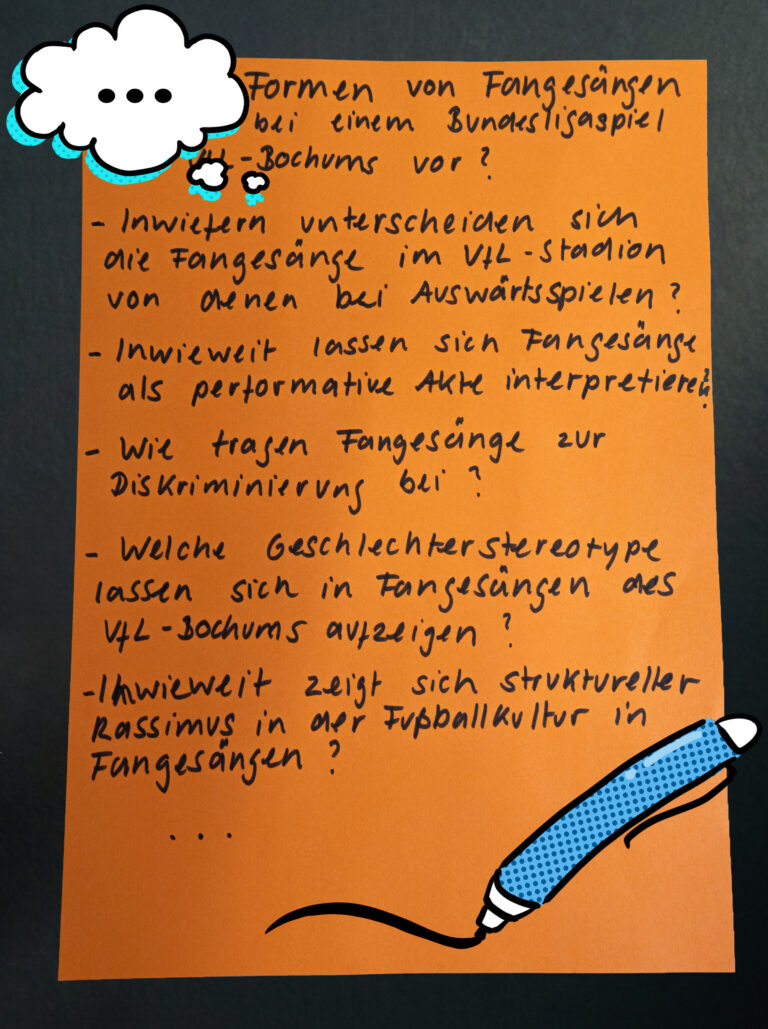 ...
Formen von Fangesängen
bei einem Bundesligaspiel
VfL-Bochums vor?
- Inwiefern unterscheiden sich
die Fangesänge im VfL-Stadion
von denen bei Auswärtsspielen?
- Inwieweit lassen sich Fangesänge
als performative Akte interpretieren?
- Wie tragen Fangesänge zur
Diskriminierung bei?
- Welche Geschlechterstereotype
lassen sich in Fangesängen des
VfL-Bochums aufzeigen?
- Inwieweit zeigt sich struktureller
Rassimus in der Fußballkultur in
Fangesängen?
...